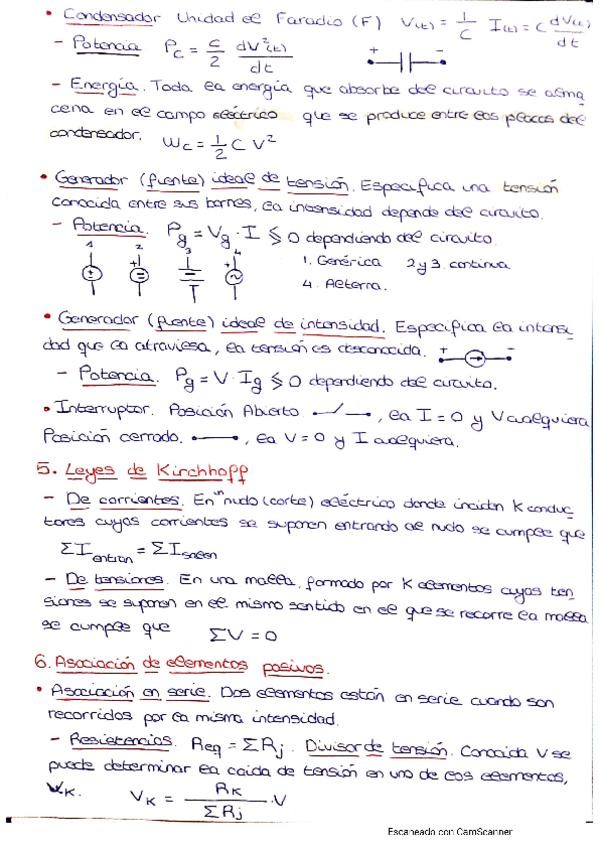 • Condensador Unidad el Faradio (F) V(t) = 1/C I(t) = C dV(t)/dt
– Potencia Pc = C/2 dV²(t)/dt + –
– Energía. Toda la energía que absorbe del circuito se alma
cena en el campo eléctrico que se produce entre las placas del
condensador. Wc = 1/2 C V²
• Generador (fuente) ideal de tensión. Especifica una tensión
conocida entre sus bornes, la intensidad depende del circuito.
– Potencia. Pg = Vg · I ≶ 0 dependiendo del circuito.
1 2 3 4 1. Genérica 2 y 3. continua
4. Alterna.
• Generador (fuente) ideal de intensidad. Especifica la intensi-
dad que la atraviesa, la tensión es desconocida. + –
– Potencia. Pg = V · Ig ≶ 0 dependiendo del circuito.
• Interruptor. Posición Abierto , la I = 0 y V cualquiera
Posición cerrado. , la V = 0 y I cualquiera.
5. Leyes de Kirchhoff
– De corrientes. En un nudo (corte) eléctrico donde inciden K conduc
tores cuyas corrientes se suponen entrando al nudo se cumple que
ΣI entran = ΣI salen
– De tensiones. En una malla, formado por K elementos cuyas ten
siones se suponen en el mismo sentido en el que se recorre la malla
se cumple que ΣV = 0
6. Asociación de elementos pasivos.
• Asociación en serie. Dos elementos están en serie cuando son
recorridos por la misma intensidad.
– Resistencias. Req = ΣRj. Divisor de tensión. Conocida V se
puede determinar la caída de tensión en uno de los elementos,
VK. VK = RK/ΣRj · V
Escaneado con CamScanner